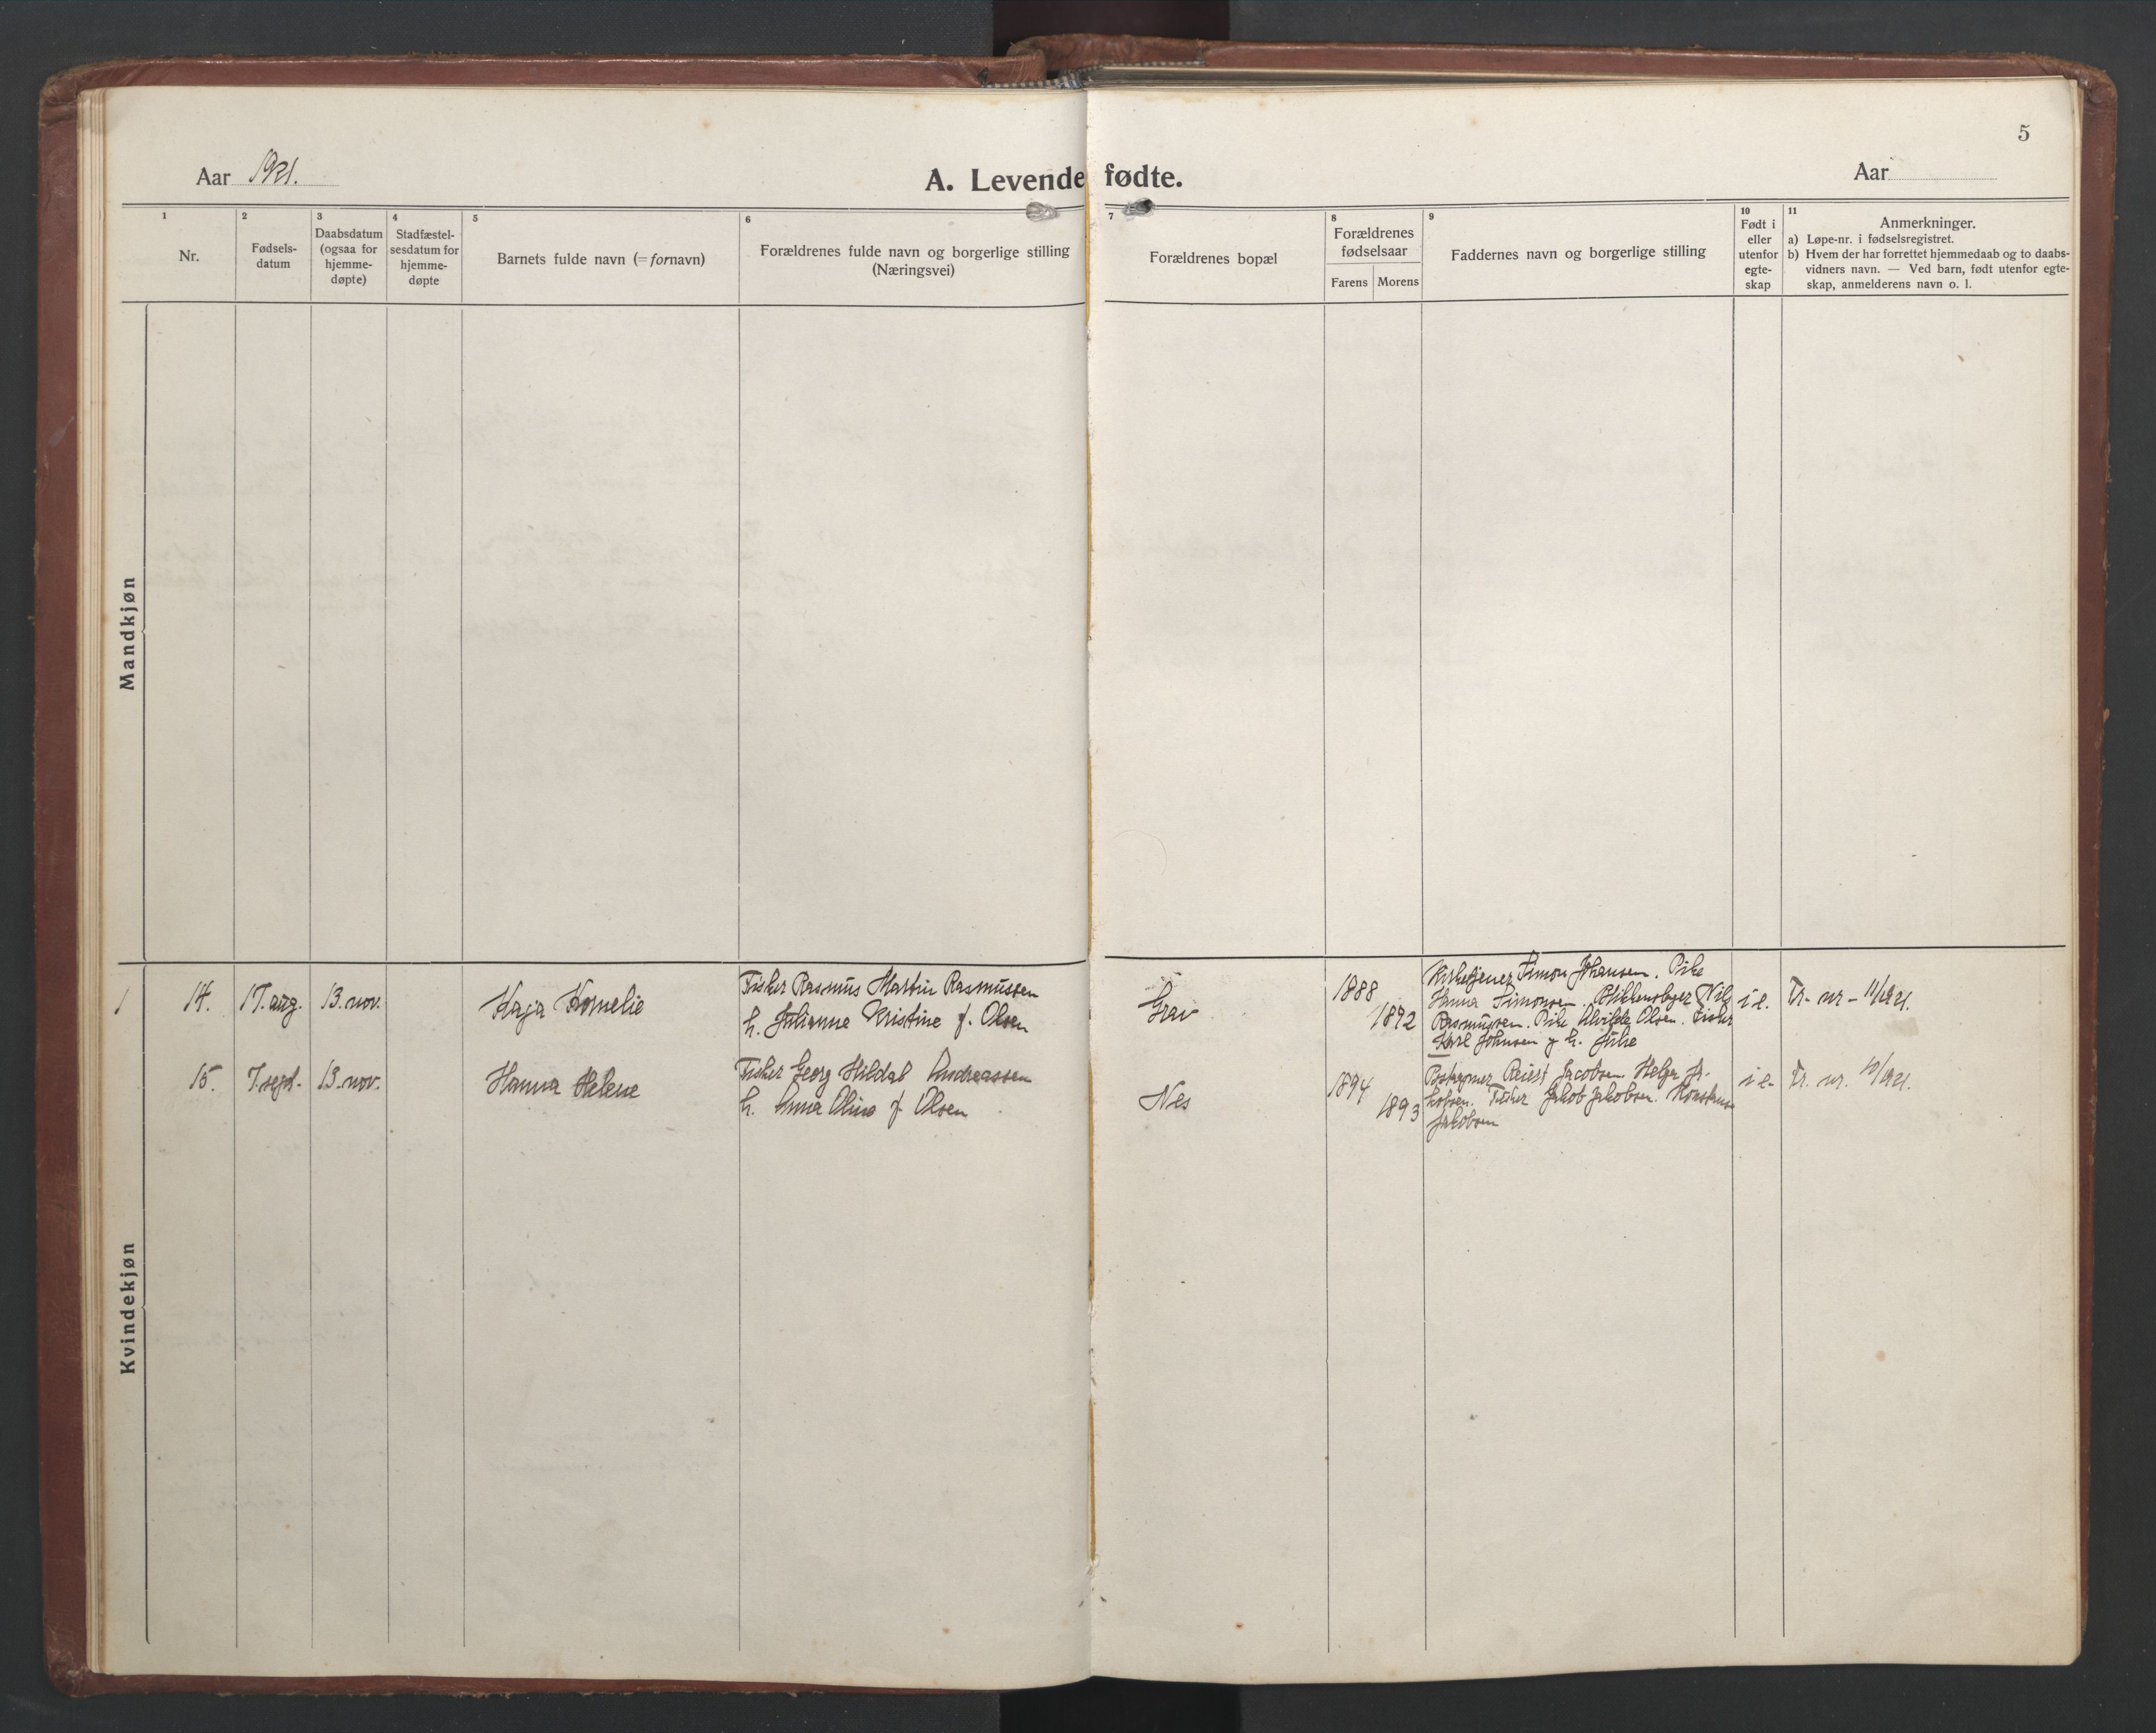 5
Aar 1921.
A. Levende fødte.
Aar
1 2 3 4 5 6 7 8 9 10 11
Nr.
Fødsels-
datum
Daabsdatum
(ogsaa for
hjemme-
døpte)
Stadfæstel-
sesdatum for
hjemme-
døpte
Barnets fulde navn (= fornavn)
Forældrenes fulde navn og borgerlige stilling
(Næringsvei)
Forældrenes bopæl
Forældrenes
fødselsaar
Farens Morens
Faddernes navn og borgerlige stilling
Født i
eller
utenfor
egte-
skap
Anmerkninger.
a) Løpe-nr. i fødselsregistret.
b) Hvem der har forrettet hjemmedaab og to daabs-
vidners navn. — Ved barn, født utenfor egte-
skap, anmelderens navn o. l.
Mandkjøn
1 14. 17. aug. 13. nov. Kaja Kornelie
Fisker Rasmus Martin Rasmussen
h. Julianne Kristine f. Olsen
Grav
1888
1892
Kirketjener Simon Johansen. Pike
Hanna Simonsen. Blikkenslager Nils
Rasmussen. Pike Alvilde Olsen. Fisker
Karl Johnsen og h.
i e. Tr. nr - 11/1921.
15. 7. sept. 13. nov. Hanna Helene
Fisker Georg Hildal Andreassen
h. Anna Oline f. Olsen
Nes
1894
1893
Jacobsen. Helga Ja-
kobsen. Fisker Jakob Jakobsen.
Jakobsen
i e. Tr. nr. 10/1921.
Kvindekjøn